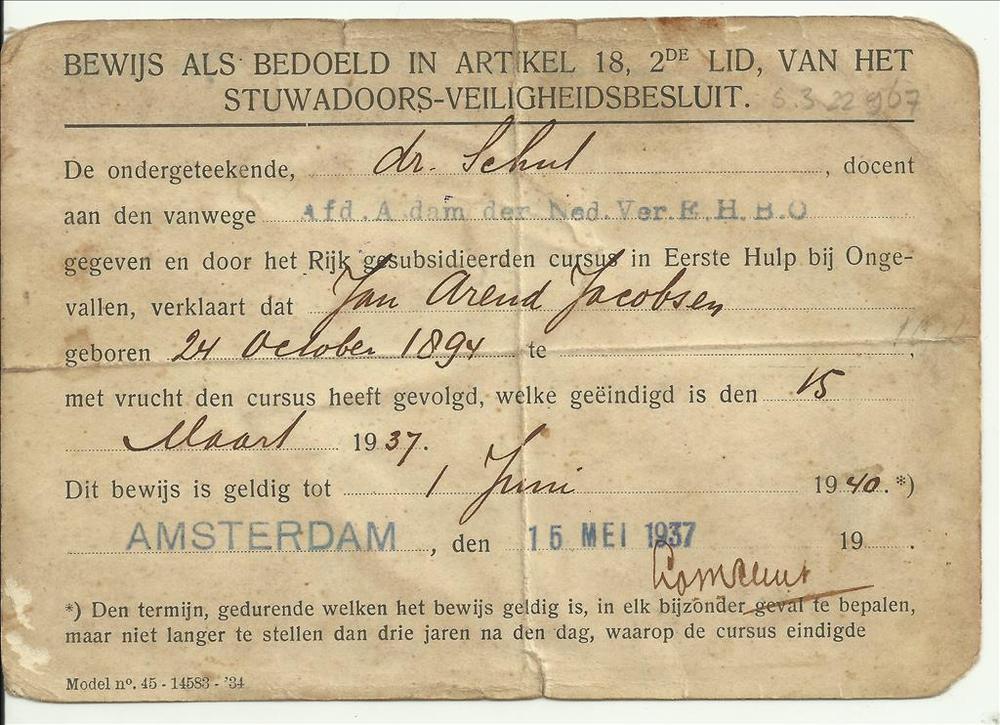 BEWIJS ALS BEDOELD IN ARTIKEL 18, 2DE LID, VAN HET
STUWADOORS-VEILIGHEIDSBESLUIT.
De ondergeteekende, dr. Schut, docent
aan den vanwege Afd. A'dam der Ned. Ver. E.H.B.O
gegeven en door het Rijk gesubsidieerden cursus in Eerste Hulp bij Onge-
vallen, verklaart dat Jan Arend Jacobsen
geboren 24 October 1894 te ,
met vrucht den cursus heeft gevolgd, welke geëindigd is den 15
Maart 1937.
Dit bewijs is geldig tot 1 Juni 1940.*)
AMSTERDAM, den 15 MEI 1937 19 .
*) Den termijn, gedurende welken het bewijs geldig is, in elk bijzonder geval te bepalen,
maar niet langer te stellen dan drie jaren na den dag, waarop de cursus eindigde
Model nº. 45 - 14583 - '34